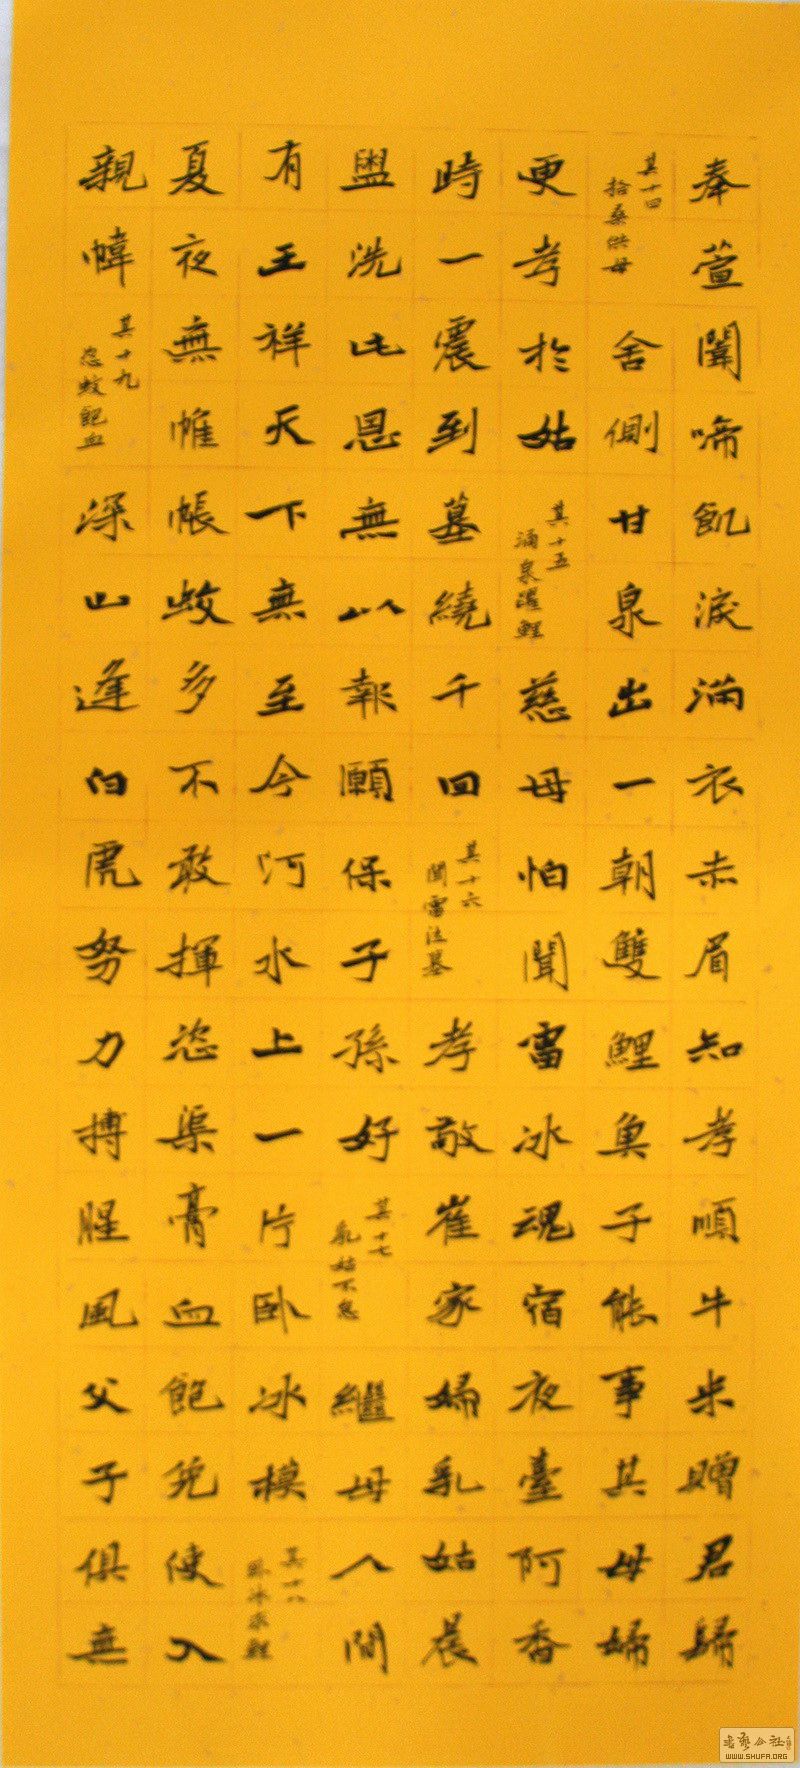 奉萱闈啼飢淚滿衣赤眉知孝順牛米贈君歸
其十四
拾桑供母
舍側甘泉出一朝雙鯉魚子能事其母婦
更孝於姑
其十五
涌泉躍鯉
慈母怕聞雷冰魂宿夜臺阿香
時一震到墓繞千回
其十六
聞雷泣墓
孝敬崔家婦乳姑晨
盥洗此恩無以報願保子孫好
其十七
乳姑不怠
繼母人間
有王祥天下無至今河水上一片卧冰模
其十八
卧冰求鯉
夏夜無帷帳蚊多不敢揮恣渠膏血飽免使入
親幃
其十九
恣蚊飽血
深山逢白虎努力搏腥風父子俱無
WWW.SHUFA.ORG